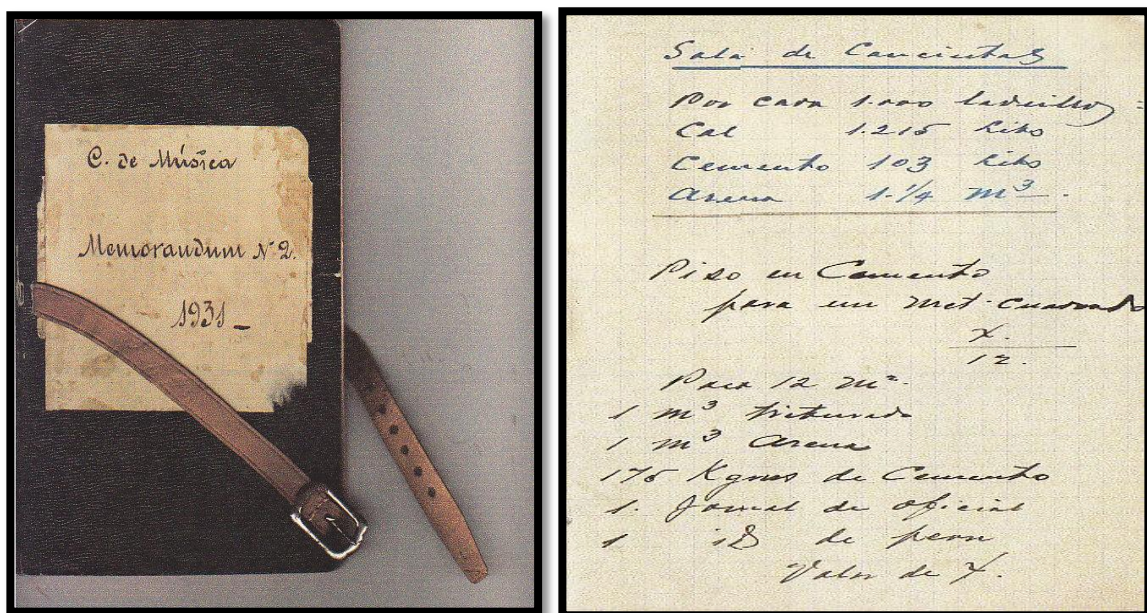 C. de Música
Memorandum Nº 2.
1931_
Sala de Conciertos
Por cada 1.000 ladrillos =
Cal 1.215 kilos
Cemento 103 kilos
Arena 1.1/4 m³.
Piso en Cemento
para un met. cuadrado
x.
12
Para 12 m².
1 m³ triturado
1 m³ Arena
175 Kgms de Cemento
1. Jornal de oficial
1 id de peon
Valor de x.